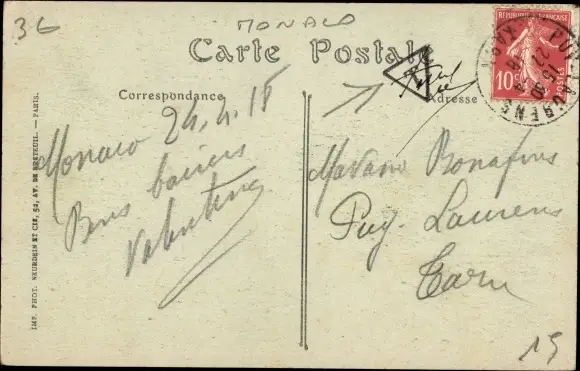 36
MONACO
Carte Postale
RÉPUBLIQUE FRANÇAISE
10c
POSTES
PUY-LAURENS
Correspondance
Adresse
Monaco 24.4.18
Bons baisers
Valentine
Madame Bonafous
Puy. Laurens
Tarn
19
IMP. PHOT. NEURDEIN ET CIE, 52, AV. DE BRETEUIL. — PARIS.